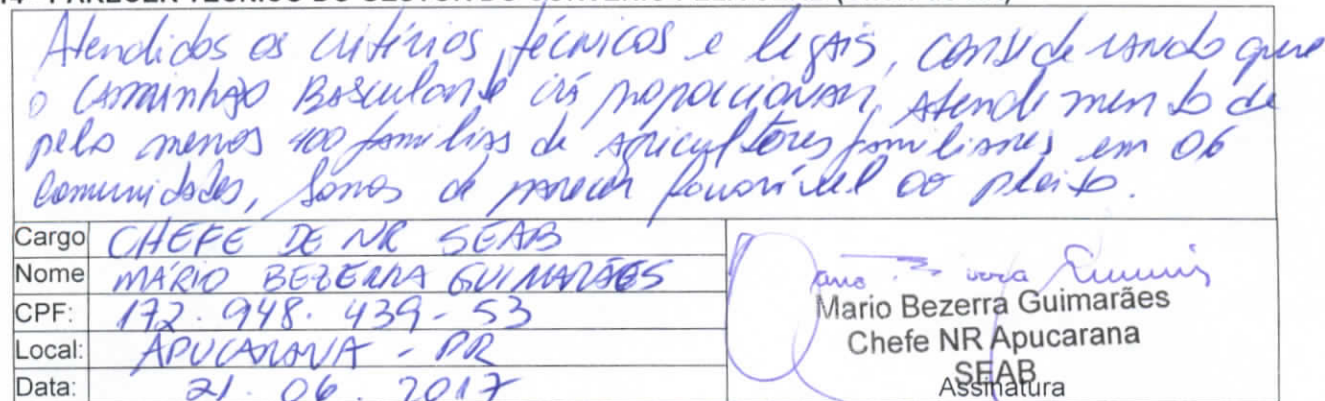 Atendidos os critérios técnicos e legais, considerando que
o caminhão Basculante irá proporcionar, atendimento de
pelo menos 100 famílias de agricultores familiares em 06
comunidades, somos de parecer favorável ao pleito.
Cargo CHEFE DE NR SEAB
Nome MÁRIO BEZERRA GUIMARÃES
CPF: 172.948.439-53
Local: APUCARANA - PR
Data: 21.06.2017
Mario Bezerra Guimarães
Chefe NR Apucarana
SEAB
Assinatura